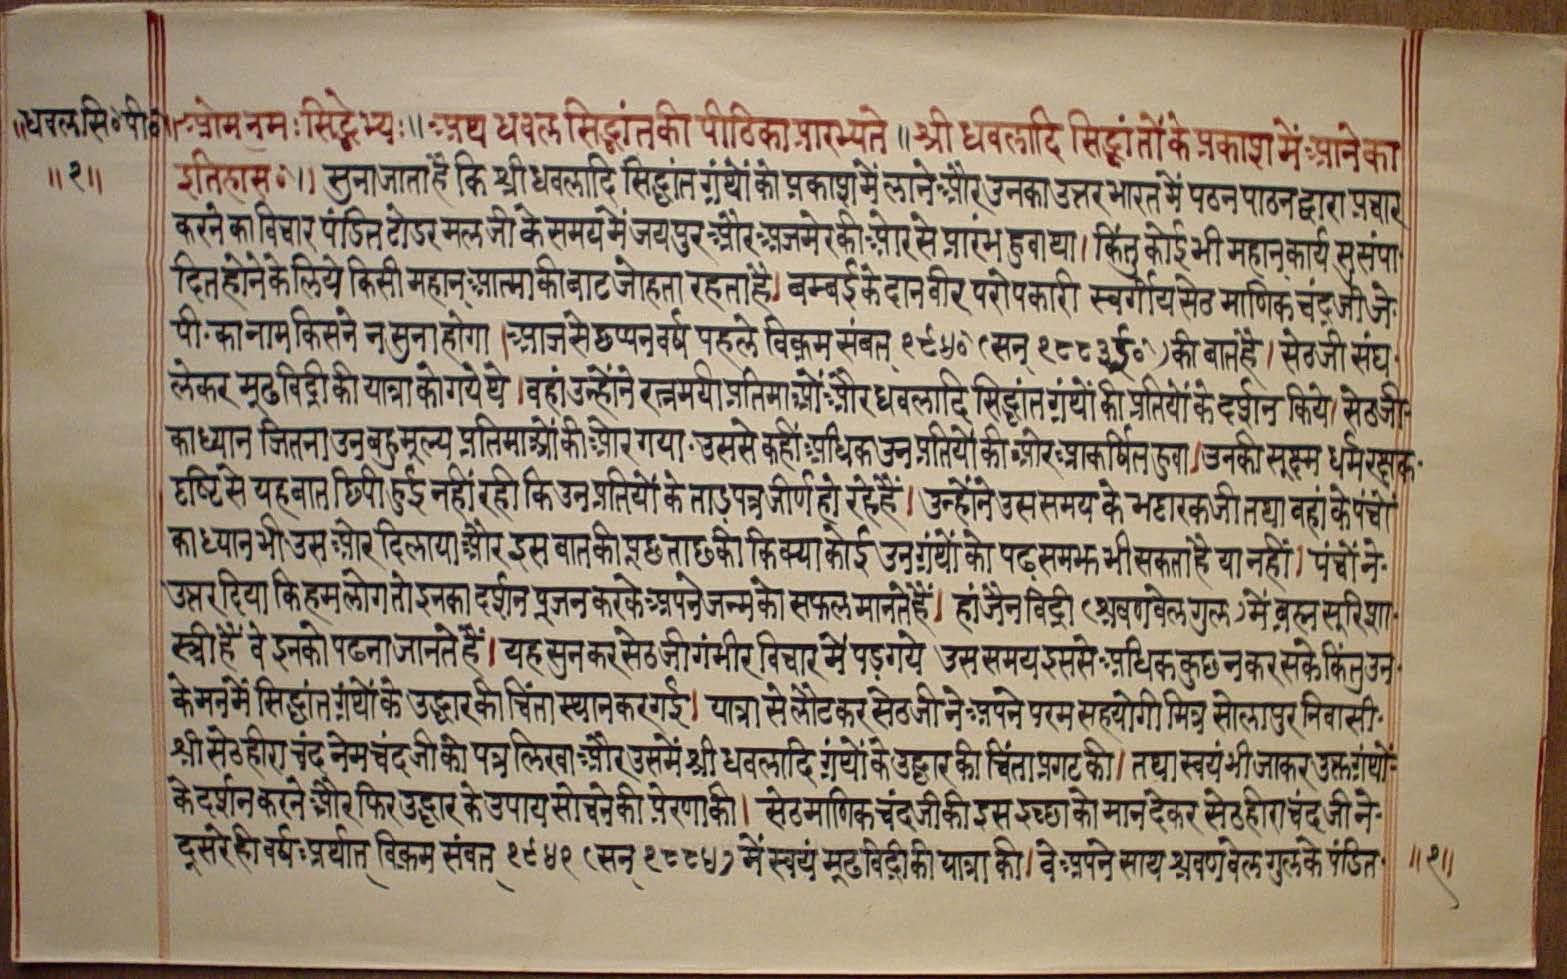 ॥धवलसि०पी०॥
॥१॥
ओंम् नमः सिद्धेभ्यः॥ अथ धवल सिद्धांत की पीठिका प्रारभ्यते॥ श्री धवलादि सिद्धांतों के प्रकाश में आने का
इतिहास०॥ सुना जाता है कि श्री धवलादि सिद्धांत ग्रंथों को प्रकाश में लाने और उनका उत्तर भारत में पठन पाठन द्वारा प्रचार
करने का विचार पंडित टोडरमल जी के समय में जयपुर और अजमेर की ओर से प्रारंभ हुवा था। किंतु कोई भी महान् कार्य सुसंपा-
दित होने के लिये किसी महान् आत्मा की बाट जोहता रहता है। बम्बई के दानवीर परोपकारी स्वर्गीय सेठ माणिकचंद्र जी जे-
पी- का नाम किसने न सुना होगा। आज से छप्पन वर्ष पहले विक्रम संवत् १९४० (सन् १८८३ ई०) की बात है। सेठ जी संघ-
लेकर मूढविद्री की यात्रा को गये थे। वहां उन्होंने रत्नमयी प्रतिमाओं और धवलादि सिद्धांत ग्रंथों की प्रतियों के दर्शन किये। सेठजी-
का ध्यान जितना उन बहुमूल्य प्रतिमाओं की ओर गया- उससे कहीं अधिक उन प्रतियों की ओर आकर्षित हुवा। उनकी सूक्ष्म धर्मरक्षक-
दृष्टि से यह बात छिपी हुई नहीं रही कि उन प्रतियों के ताड़पत्र जीर्ण हो रहे हैं। उन्होंने उस समय के भट्टारक जी तथा वहां के पंचों
का ध्यान भी उस ओर दिलाया और इस बात की पूछताछ की कि क्या कोई उन ग्रंथों को पढ़ समझ भी सकता है या नहीं। पंचों ने-
उत्तर दिया कि हम लोग तो इनका दर्शन पूजन करके अपने जन्म को सफल मानते हैं। हां जैनविद्री (श्रवणबेलगुल) में ब्रह्मसूरि शा-
स्त्री हैं वे इनको पढना जानते हैं। यह सुनकर सेठजी गंभीर विचार में पड़ गये उस समय इससे अधिक कुछ न कर सके किंतु उन-
के मन में सिद्धांत ग्रंथों के उद्धार की चिंता स्थान कर गई। यात्रा से लौटकर सेठजी ने अपने परम सहयोगी मित्र सोलापुर निवासी-
श्री सेठ हीराचंद नेमचंद जी को पत्र लिखा और उसमें श्री धवलादि ग्रंथों के उद्धार की चिंता प्रगट की। तथा स्वयं भी जाकर उक्त ग्रंथों-
के दर्शन करने और फिर उद्धार के उपाय सोचने की प्रेरणा की। सेठ माणिकचंद जी की इस इच्छा को मान देकर सेठ हीराचंद जी ने-
दूसरे ही वर्ष- अर्थात् विक्रम संवत् १९४१ (सन् १८८४) में स्वयं मूढविद्री की यात्रा की। वे अपने साथ श्रवणबेलगुल के पंडित-
॥१॥